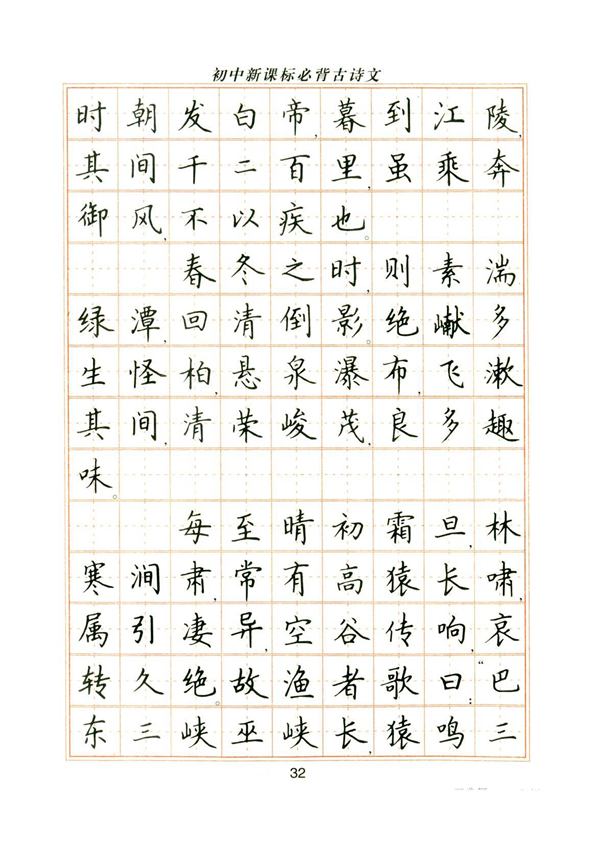 初中新课标必背古诗文
时朝发白帝,暮到江陵,
其间千二百里,虽乘奔
御风,不以疾也。
春冬之时,则素湍
绿潭,回清倒影。绝巘多
生怪柏,悬泉瀑布,飞漱
其间,清荣峻茂,良多趣
味。
每至晴初霜旦,林
寒涧肃,常有高猿长啸,
属引凄异,空谷传响,哀
转久绝。故渔者歌曰:“巴
东三峡巫峡长,猿鸣三
32